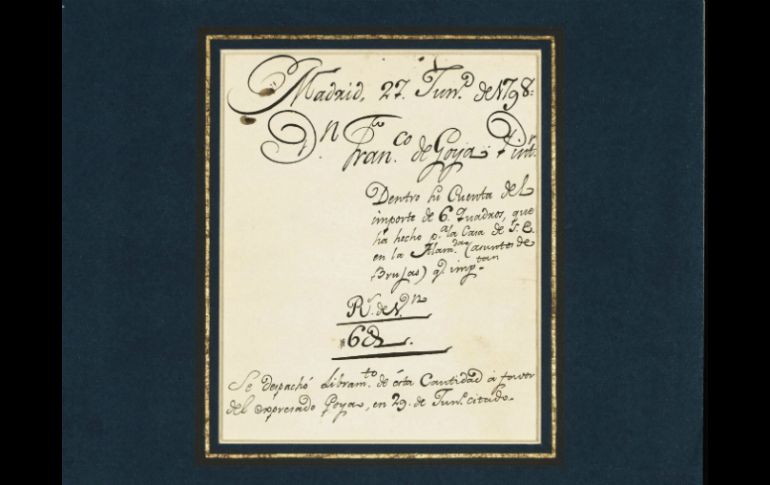 Madrid, 27. Jun.º de 1798:
Dn. Franco. de Goya, Pintr.
Dentro hi Cuenta del
importe de 6. Quadros, que
ha hecho p.ª la Casa de S. E.
en la Alamda. (asuntos de
Brujas) q.e imptan.
Rs. de Vn.
6@.
Se despachó Libramto. de ésta Cantidad á favor
del expresado Goya, en 29. de Jun.º citado.